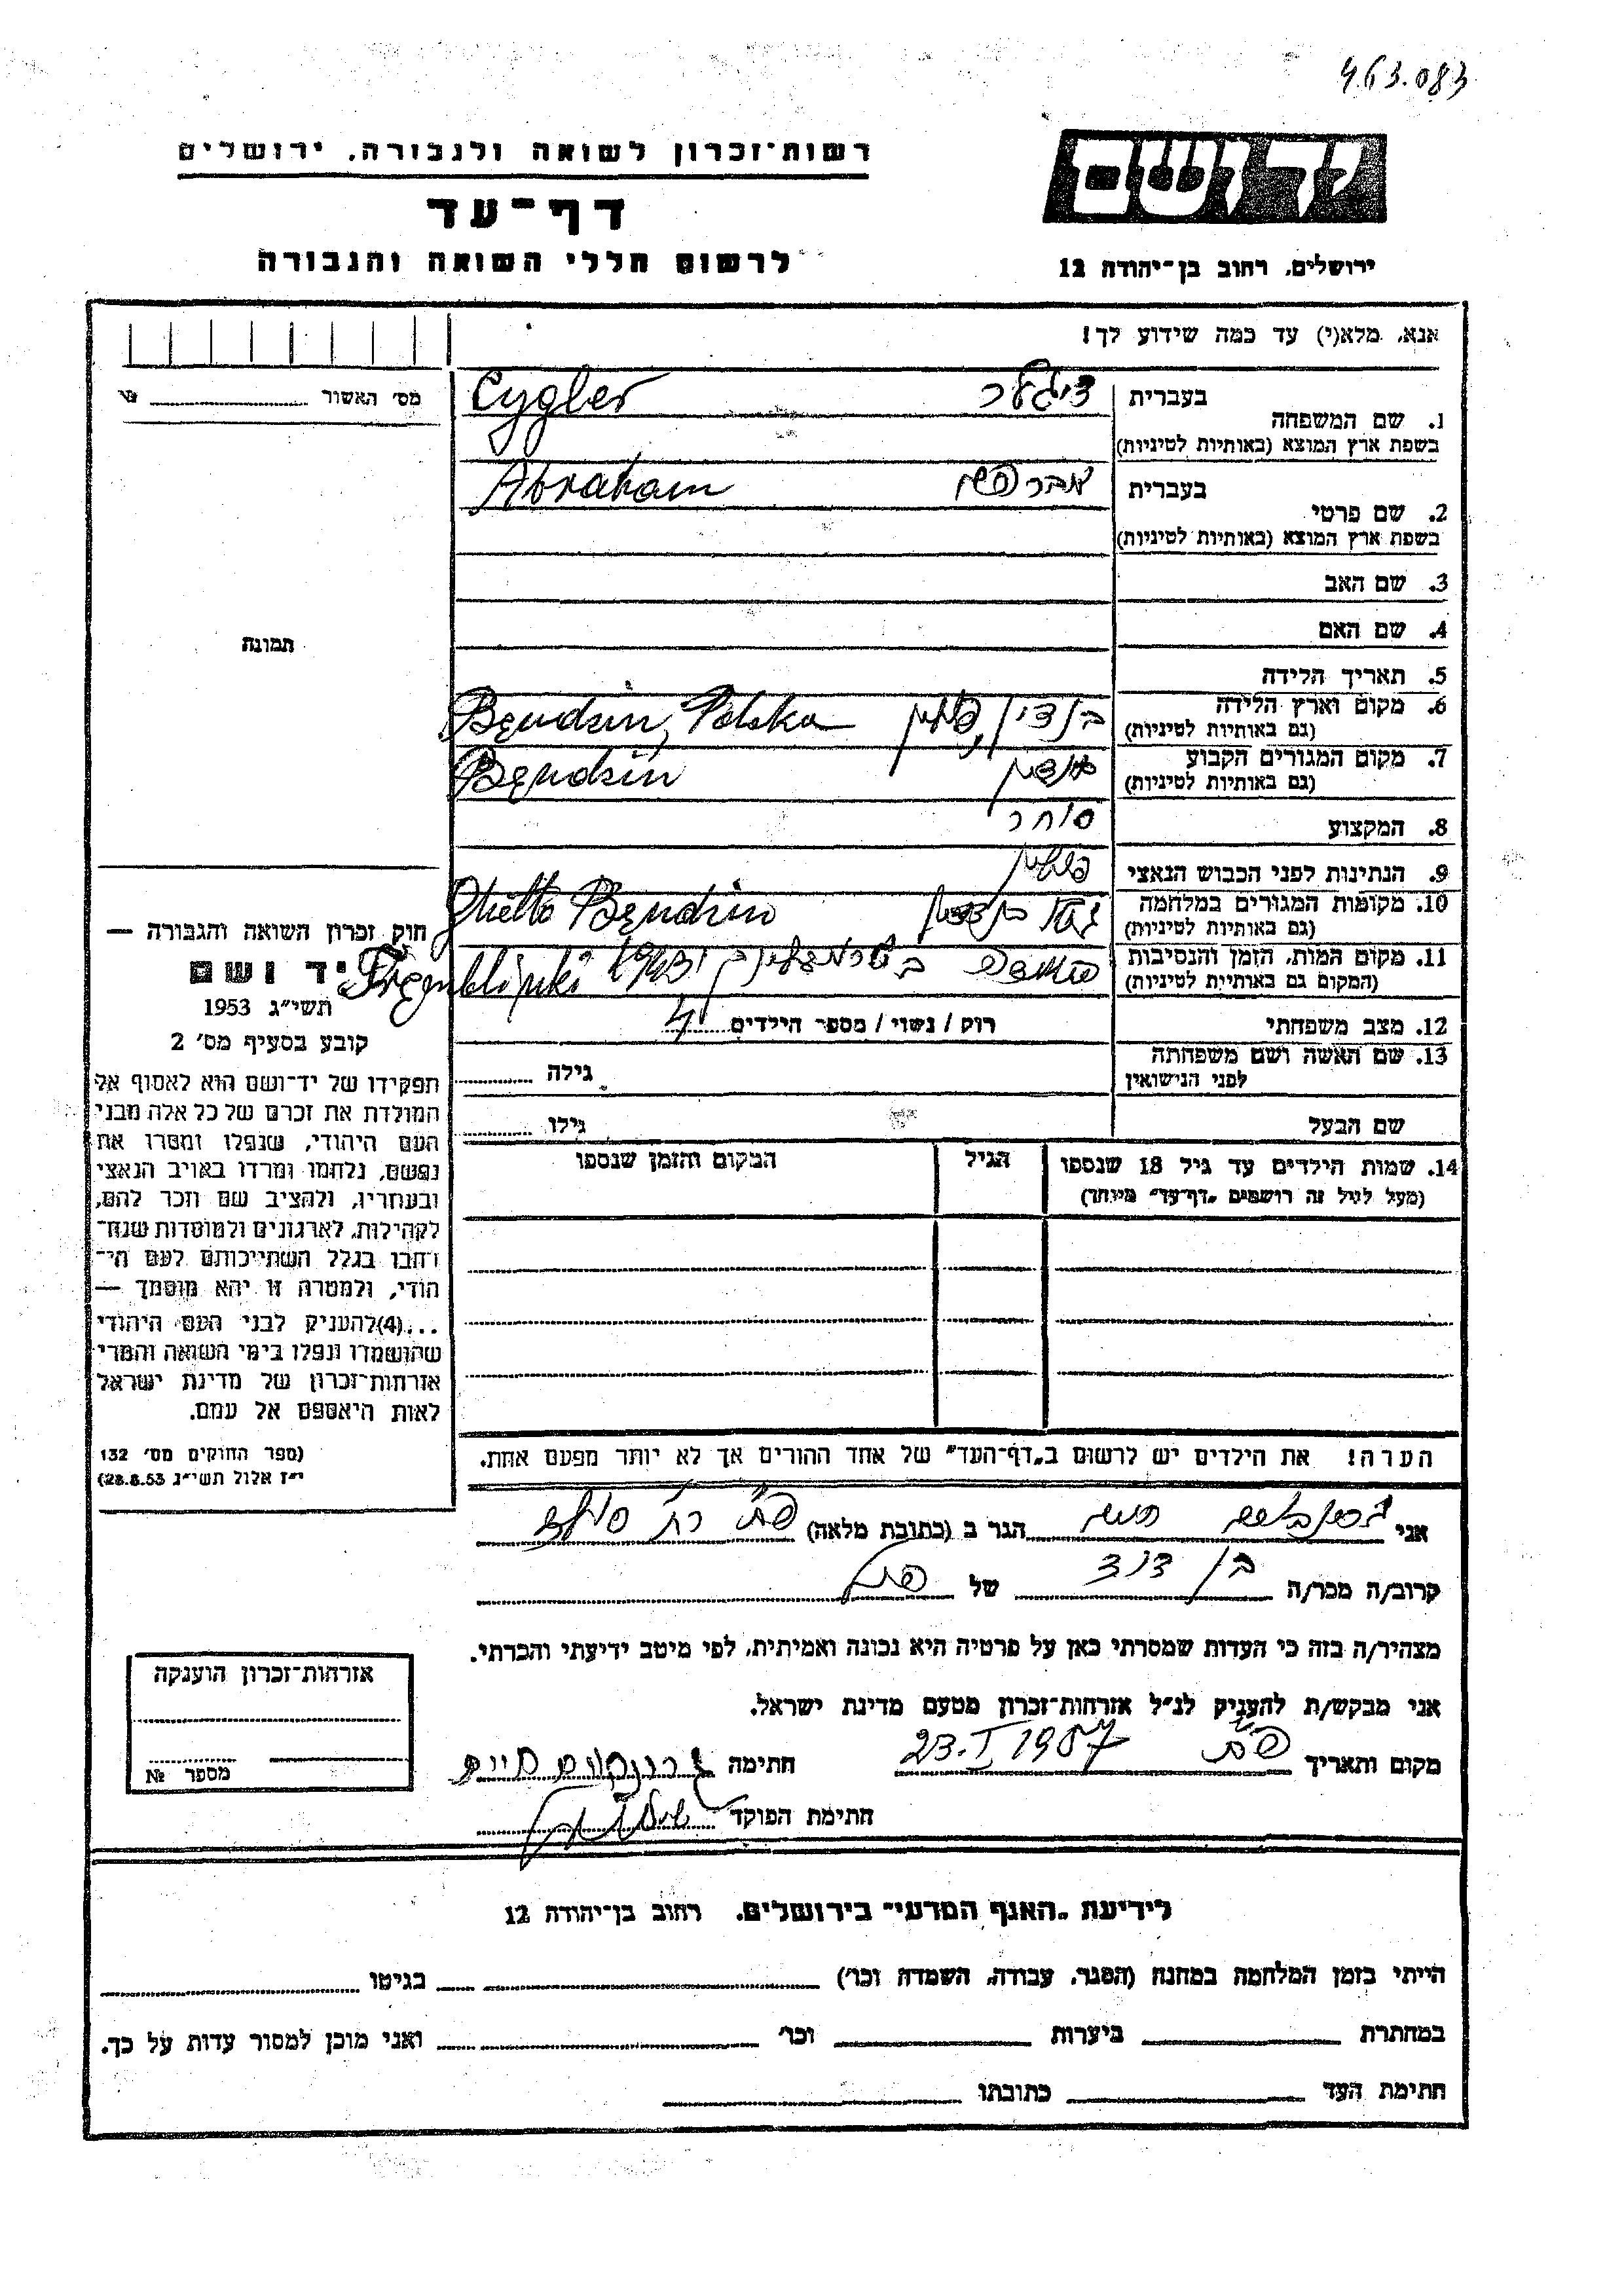 463.083
רשות־זכרון לשואה ולגבורה, ירושלים
דף־עד
לרשום חללי השואה והגבורה
יד ושם
ירושלים, רחוב בן־יהודה 12
אנא, מלא(י) עד כמה שידוע לך!
מס׳ האשור № 
1. שם המשפחה בעברית ציגלר
בשפת ארץ המוצא (באותיות לטיניות) Cygler
2. שם פרטי בעברית אברהם
בשפת ארץ המוצא (באותיות לטיניות) Abraham
3. שם האב
4. שם האם
5. תאריך הלידה
6. מקום וארץ הלידה (גם באותיות לטיניות) בנדין, פולין Bendzin, Polska
7. מקום המגורים הקבוע (גם באותיות לטיניות) Bendzin
8. המקצוע סוחר
9. הנתינות לפני הכבוש הנאצי פולין
10. מקומות המגורים במלחמה (גם באותיות לטיניות) גטו Ghetto Bendzin
11. מקום המות, הזמן והנסיבות (המקום גם באותיות לטיניות) 1943
12. מצב משפחתי רווק / נשוי / מספר הילדים 4
13. שם האשה ושם משפחתה לפני הנישואין גילה
שם הבעל גילו
14. שמות הילדים עד גיל 18 שנספו הגיל המקום והזמן שנספו
(מעל לגיל זה רושמים „דף־עד״ מיוחד)
תמונה
חוק זכרון השואה והגבורה —
יד ושם
תשי״ג 1953
קובע בסעיף מס׳ 2
תפקידו של יד־ושם הוא לאסוף אל
המולדת את זכרם של כל אלה מבני
העם היהודי, שנפלו ומסרו את
נפשם, נלחמו ומרדו באויב הנאצי
ובעוזריו, ולהציב שם וזכר להם,
לקהילות, לארגונים ולמוסדות שנח־
רבו בגלל השתייכותם לעם הי־
הודי, ולמטרה זו יהא מוסמך —
...(4)להעניק לבני העם היהודי
שהושמדו ונפלו בימי השואה והמרי
אזרחות־זכרון של מדינת ישראל
לאות היאספם אל עמם.
(ספר החוקים מס׳ 132
י״ז אלול תשי״ג 28.8.53)
הערה! את הילדים יש לרשום ב„דף־העד״ של אחד ההורים אך לא יותר מפעם אחת.
אני הגר ב (כתובת מלאה)
קרוב/ה מכר/ה בן דוד של
מצהיר/ה בזה כי העדות שמסרתי כאן על פרטיה היא נכונה ואמיתית, לפי מיטב ידיעתי והכרתי.
אני מבקש/ת להעניק לנ״ל אזרחות־זכרון מטעם מדינת ישראל.
מקום ותאריך 23.I.1957 חתימה חיים
חתימת הפוקד
אזרחות־זכרון הוענקה
מספר №
לידיעת „האגף המדעי״ בירושלים, רחוב בן־יהודה 12
הייתי בזמן המלחמה במחנה (הסגר, עבודה, השמדה וכו׳) בגיטו
במחתרת ביערות וכו׳ ואני מוכן למסור עדות על כך.
חתימת העד כתובתו